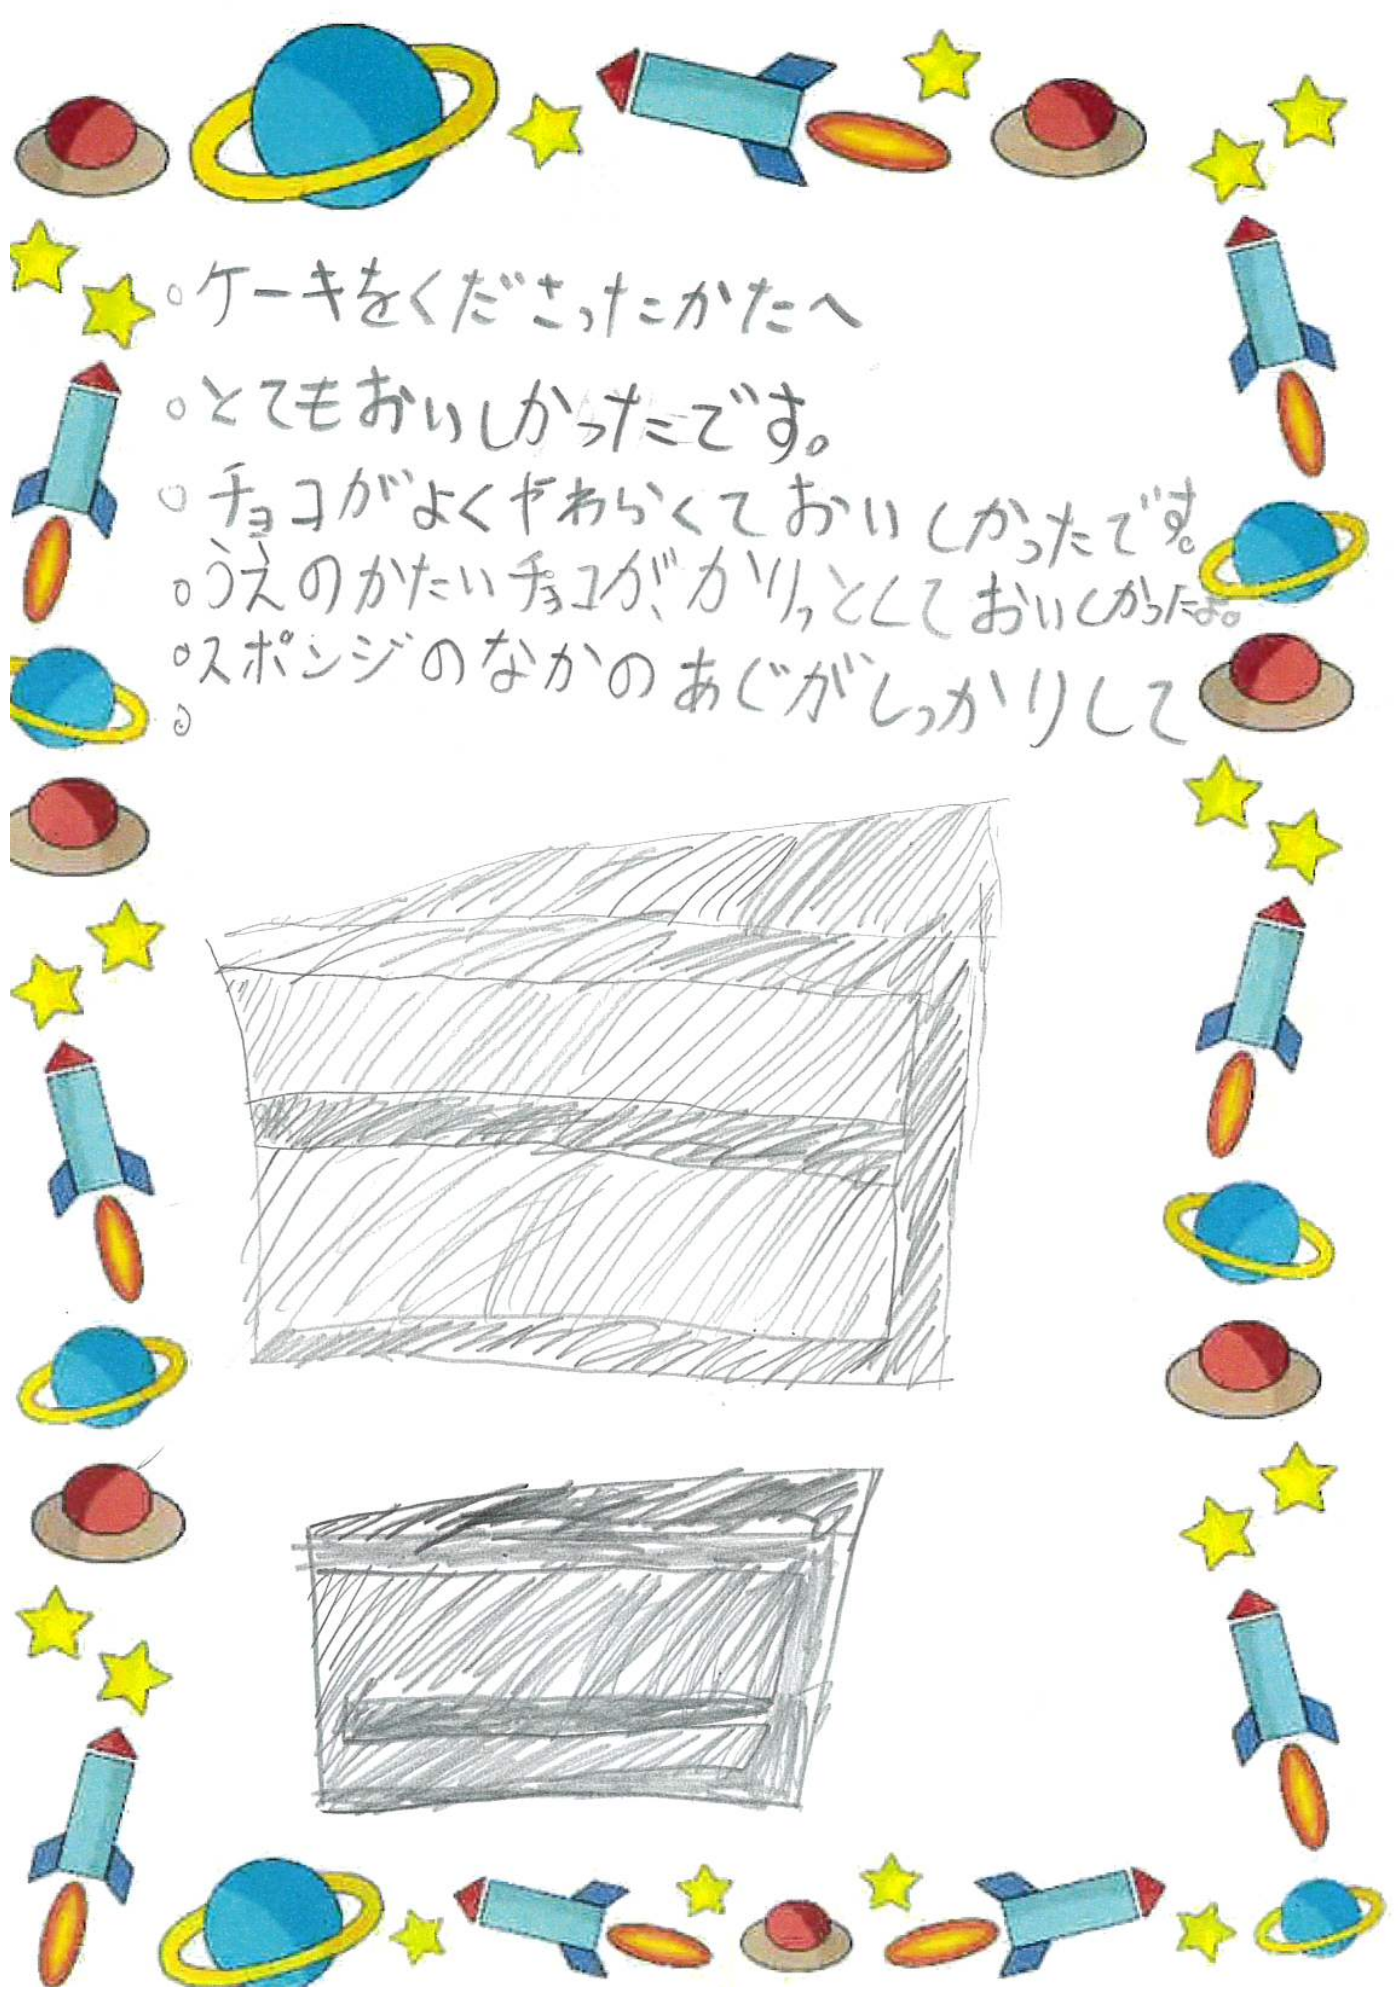 。ケーキをくださったかたへ
。とてもおいしかったです。
。チョコがよくやわらくておいしかったです。
。うえのかたいチョコが、かりっとしておいしかったよ。
。スポンジのなかのあじがしっかりして
。